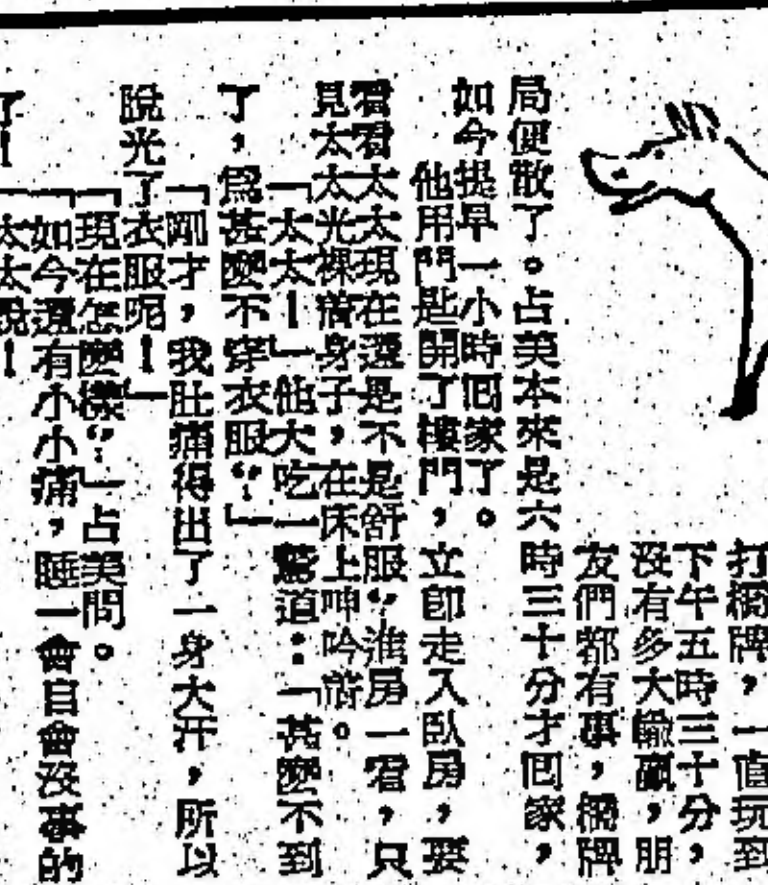 打網牌，一直玩到
下午五時三十分，
沒有多大輸贏，朋
友們都有事，網牌
局便散了。占美本來是六時三十分才囘家，
如今提早一小時囘家了。
他用門匙開了樓門，立即走入臥房，要
看看太太現在還是不是舒服？進房一看，只
見太太光裸着身子，在床上呻吟着。
「太太！」他大吃一驚道：「甚麼不到
了，爲甚麼不穿衣服？」
「剛才，我肚痛得出了一身大汗，所以
脫光了衣服呢！」
「現在怎麼樣？」占美問。
「如今還有小小痛，睡一會自會沒事的
了！」太太說！